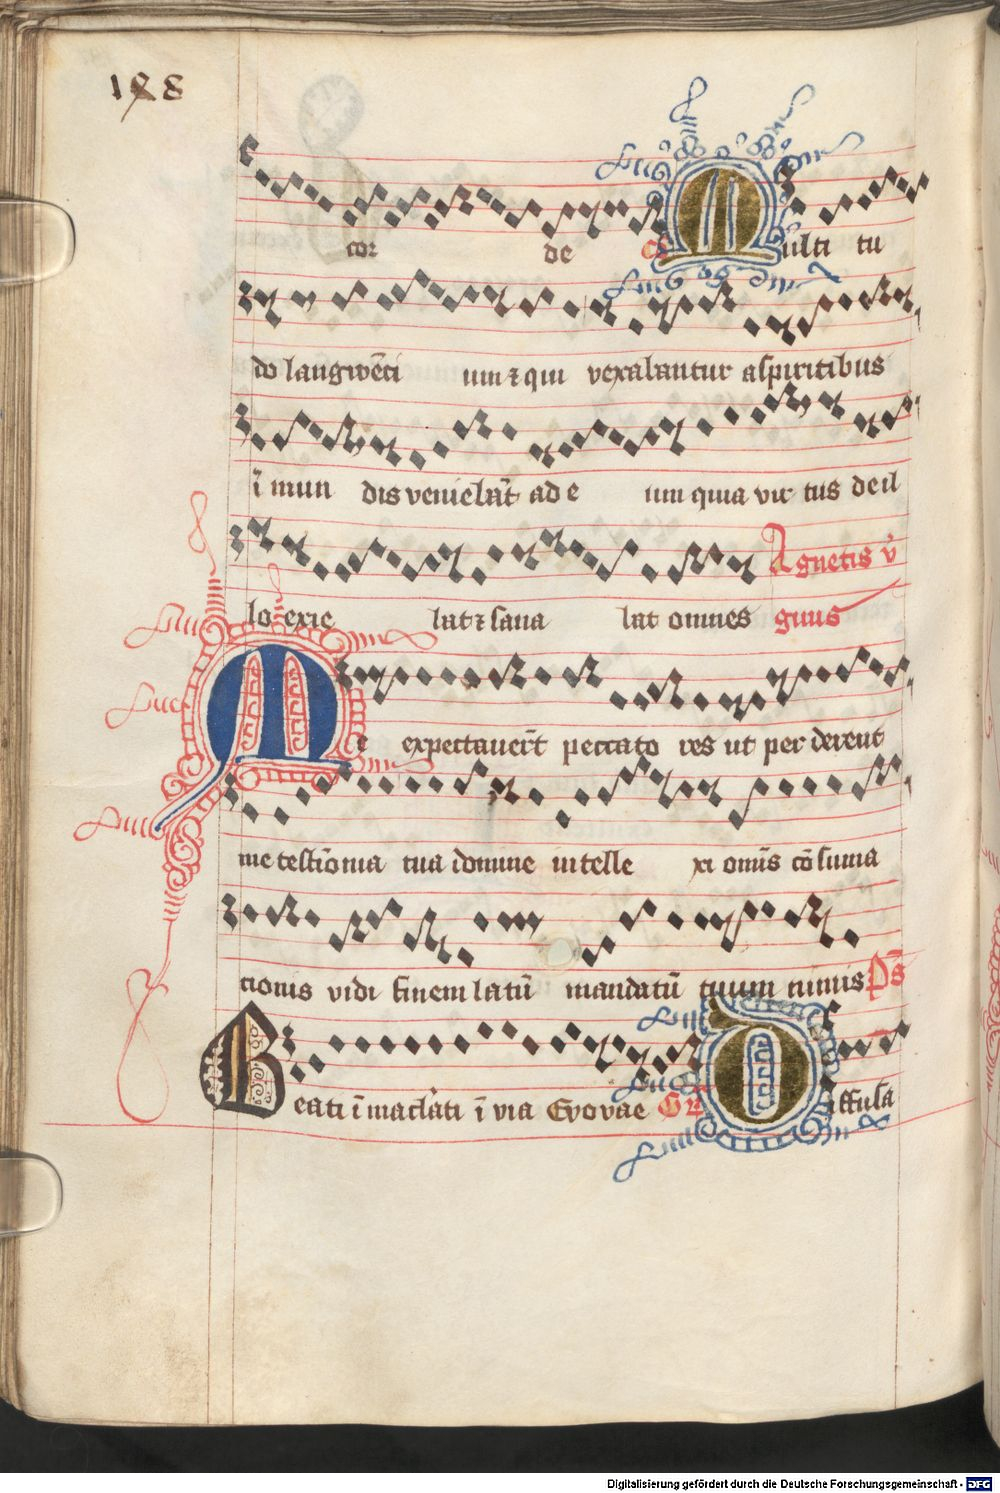 198
cor de Co Multi tu
do langwēci um ⁊ qui vexabantur a spiritibus
ī mun dis veniebāt ad e um quia vir tus de il
lo exie bat ⁊ sana bat omnes Agnetis v̄
ginis
Me expectauer̄t peccato res ut per derent
me testiōnia tua domine intelle xi om̄is cōsuma
cionis vidi finem latū mandatū tuum nimis Ps̄
Beati īmaclāti ī via Evovae Gr̄ Diffusa
Digitalisierung gefördert durch die Deutsche Forschungsgemeinschaft - DFG